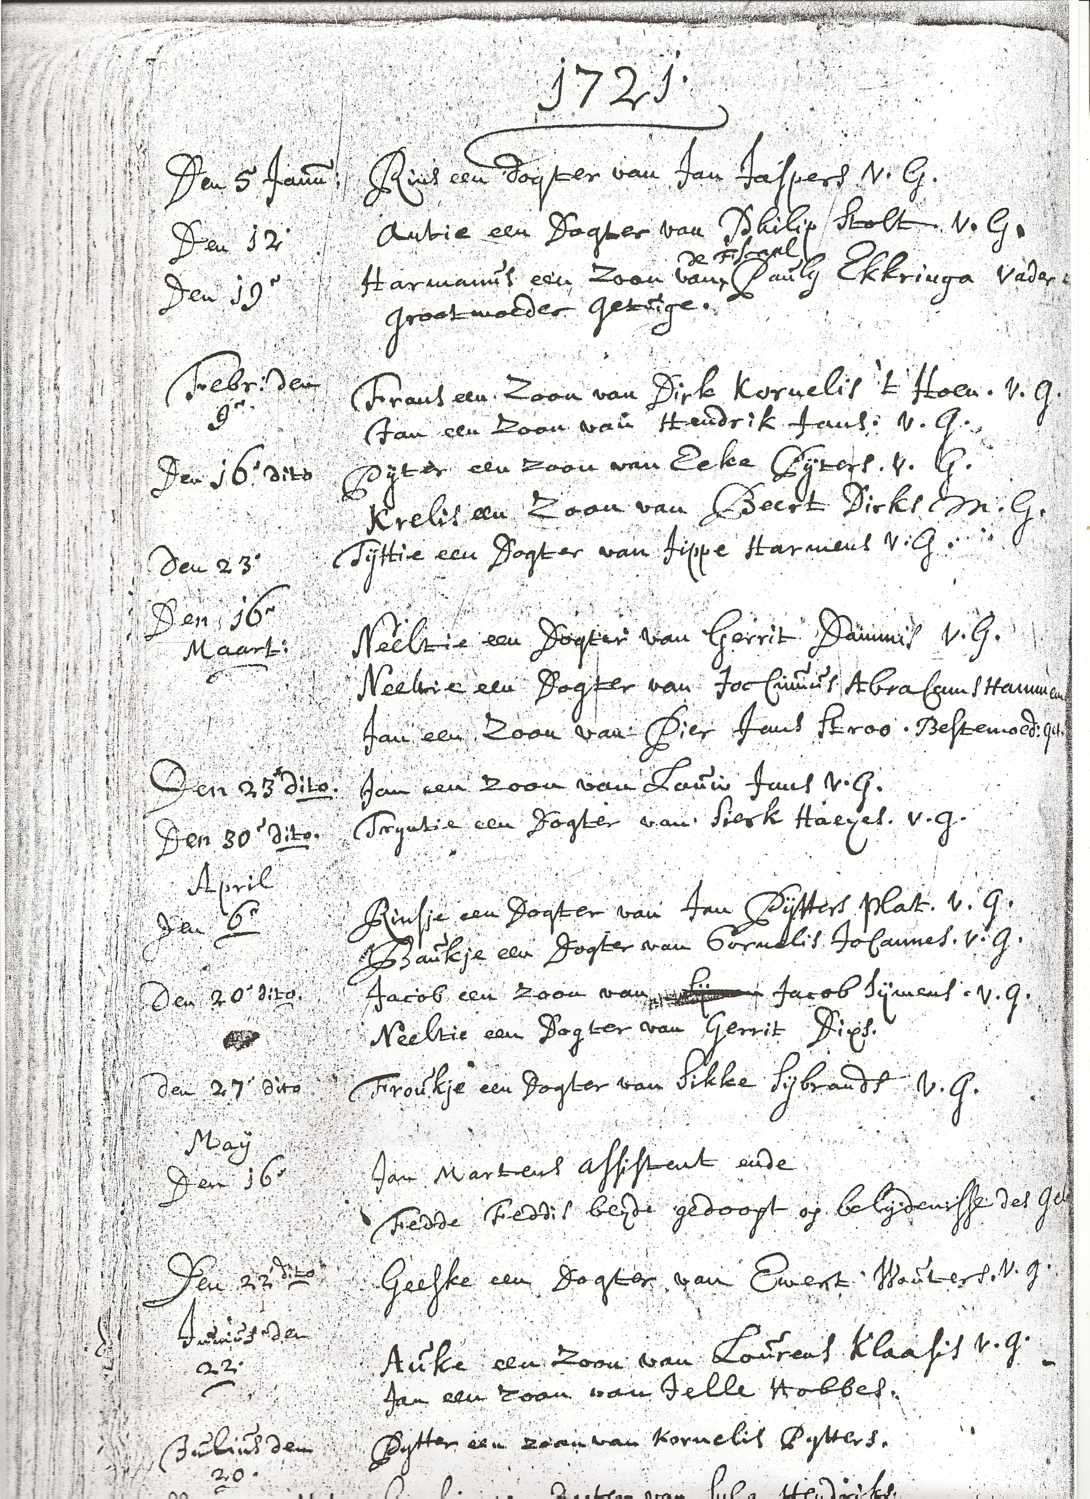 1721.
Den 5 Janū: Rins een Dogter van Jan Jaspers. V. G.
Den 12 Antie een Dogter van Philip Stolt V. G.
de Fiscael
Den 19 Harmanūs een Zoon van Paulÿ Ekkringa Vader
grootmoeder getūige.
Febr: den Frans een Zoon van Dirk Kornelis 't Hoen. V. G.
9 Jan een Zoon van Hendrik Jans. V. G.
Den 16 dito Pÿter een zoon van Eeke Pÿters. V. G.
Krelis een Zoon van Beert Dirks M. G.
Den 23 Tÿttie een Dogter van Jippe Harmens V. G.
Den 16
Maart: Neeltie een Dogter van Gerrit Dammis V. G.
Neeltie een Dogter van Jochimūs Abrahams Hammen
Jan een Zoon van Pier Jans Stroo. Bestemoed: get.
Den 23 dito. Jan een Zoon van Loūw Jans V. G.
Den 30 dito. Tryntie een Dogter van Sierk Haeyes. V. G.
April
Den 6 Rinsje een Dogter van Jan Pÿtters Plat. V. G.
Baūkje een Dogter van Cornelis Johannes. V. G.
Den 20 dito. Jacob een Zoon van Jacob Sÿmens. V. G.
Neeltie een Dogter van Gerrit Dixs.
den 27 dito Froūkje een Dogter van Sikke Sÿbrands V. G.
Maÿ
Den 16 Jan Martens assistent ende
Fedde Feddis beÿde gedoopt op belÿdenisse des
Den 22 dito Geeske een Dogter van Ewert Woūters. V. G.
Jūniūs den
22. Aūke een Zoon van Loūrens Klaasis V. G.
Jan een Zoon van Jelle Hobbes.
Jūliūs den Pytter een zoon van Kornelis Pytters.
20.
van Hendriks